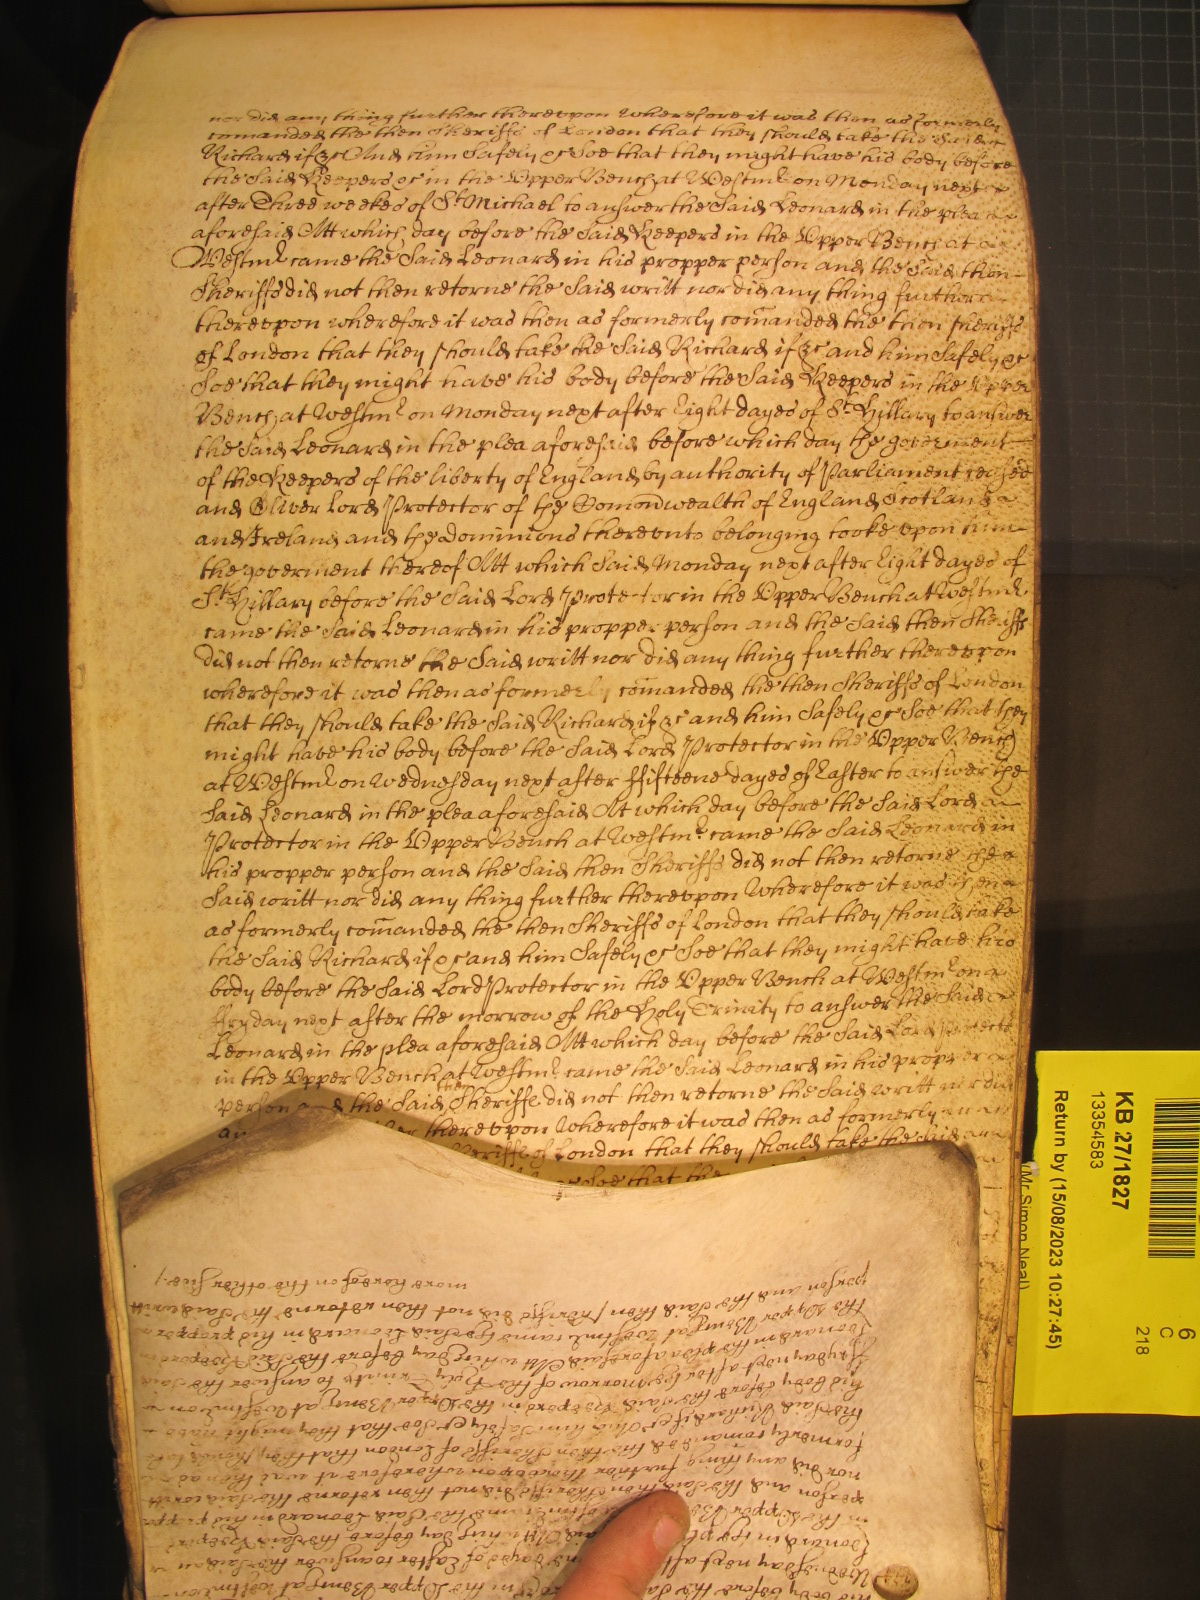 nor did any thing further therevpon Wherefore it was then as formerly
comanded the then Sheriffs of London that they should take the said
Richard if &c And him Safely &c Soe that they might have his body before
the Said Keepers &c in the Vpper Bench at Westmr on Monday next
after Three weekes of St Michael to answer the Said Leonard in the plea
aforesaid Att which day before the Said Keepers in the Vpper Bench at
Westmr came the Said Leonard in his propper person and the Said then
Sheriffs did not then retorne the Said writt nor did any thing further
therevpon wherefore it was then as formerly comanded the then sheriffs
of London that they should take the Said Richard if &c and him Safely &c
Soe that they might have his body before the Said Keepers in the Vpper
Bench at Westmr on Monday next after Eight dayes of St Hillary to answer
the Said Leonard in the plea aforesaid before which day the goverment
of the Keepers of the liberty of England by authority of Parliament ceased
and Oliver Lord Protector of the Comonwealth of England Scotland
and Ireland and the dominions therevnto belonging tooke vpon him
the goverment thereof Att which Said Monday next after Eight dayes of
St Hillary before the Said Lord Protector in the Vpper Bench at Westmr
came the Said Leonard in his propper person and the Said then Sheriffs
did not then retorne the Said writt nor did any thing further therevpon
wherefore it was then as formerly comanded the then Sheriffs of London
that they should take the Said Richard if &c and him Safely &c Soe that they
might have his body before the Said Lord Protector in the Vpper Bench
at Westmr on Wednesday next after ffifteene dayes of Easter to answer the
Said Leonard in the plea aforesaid At which day before the Said Lord
Protector in the Vpper Bench at Westmr came the Said Leonard in
his propper person and the Said then Sheriffs did not then retorne the
Said writt nor did any thing further therevpon Wherefore it was then
as formerly comanded the then Sheriffs of London that they should take
the Said Richard if &c and him Safely &c Soe that they might have his
body before the Said Lord Protector in the Vpper Bench at Westmr on
ffryday next after the morrow of the Holy Trinity to answer the Said
Leonard in the plea aforesaid Att which day before the Said Lord Protector
in the Vpper Bench at Westmr came the Said Leonard in his propper
person and the Said then Sheriffe did not then retorne the Said writt nor did
therevpon Wherefore it was then as formerly
Sheriffs of London that they should take the Said
&c Soe that the
KB 27/1827
13354583
Return by (15/08/2023 10:27:45)
(Mr Simon Neal)
6
C
218
more hereof on the other side
person and the Said then Sheriffs did not then retorne the Said writt
the Vpper Bench at Westmr came the Said Leonard in his propper
Leonard in the plea aforesaid Att which day before the Said Keepers in
ffryday next after the morrow of the Holy Trinity to answer the Said
his body before the Said Keepers in the Vpper Bench at Westmr on
the Said Richard if &c And him Safely &c Soe that they might have
formerly comanded the then Sheriffs of London that they should take
nor did any thing further therevpon wherefore it was then as
person and the Said then Sheriffs did not then retorne the Said writt